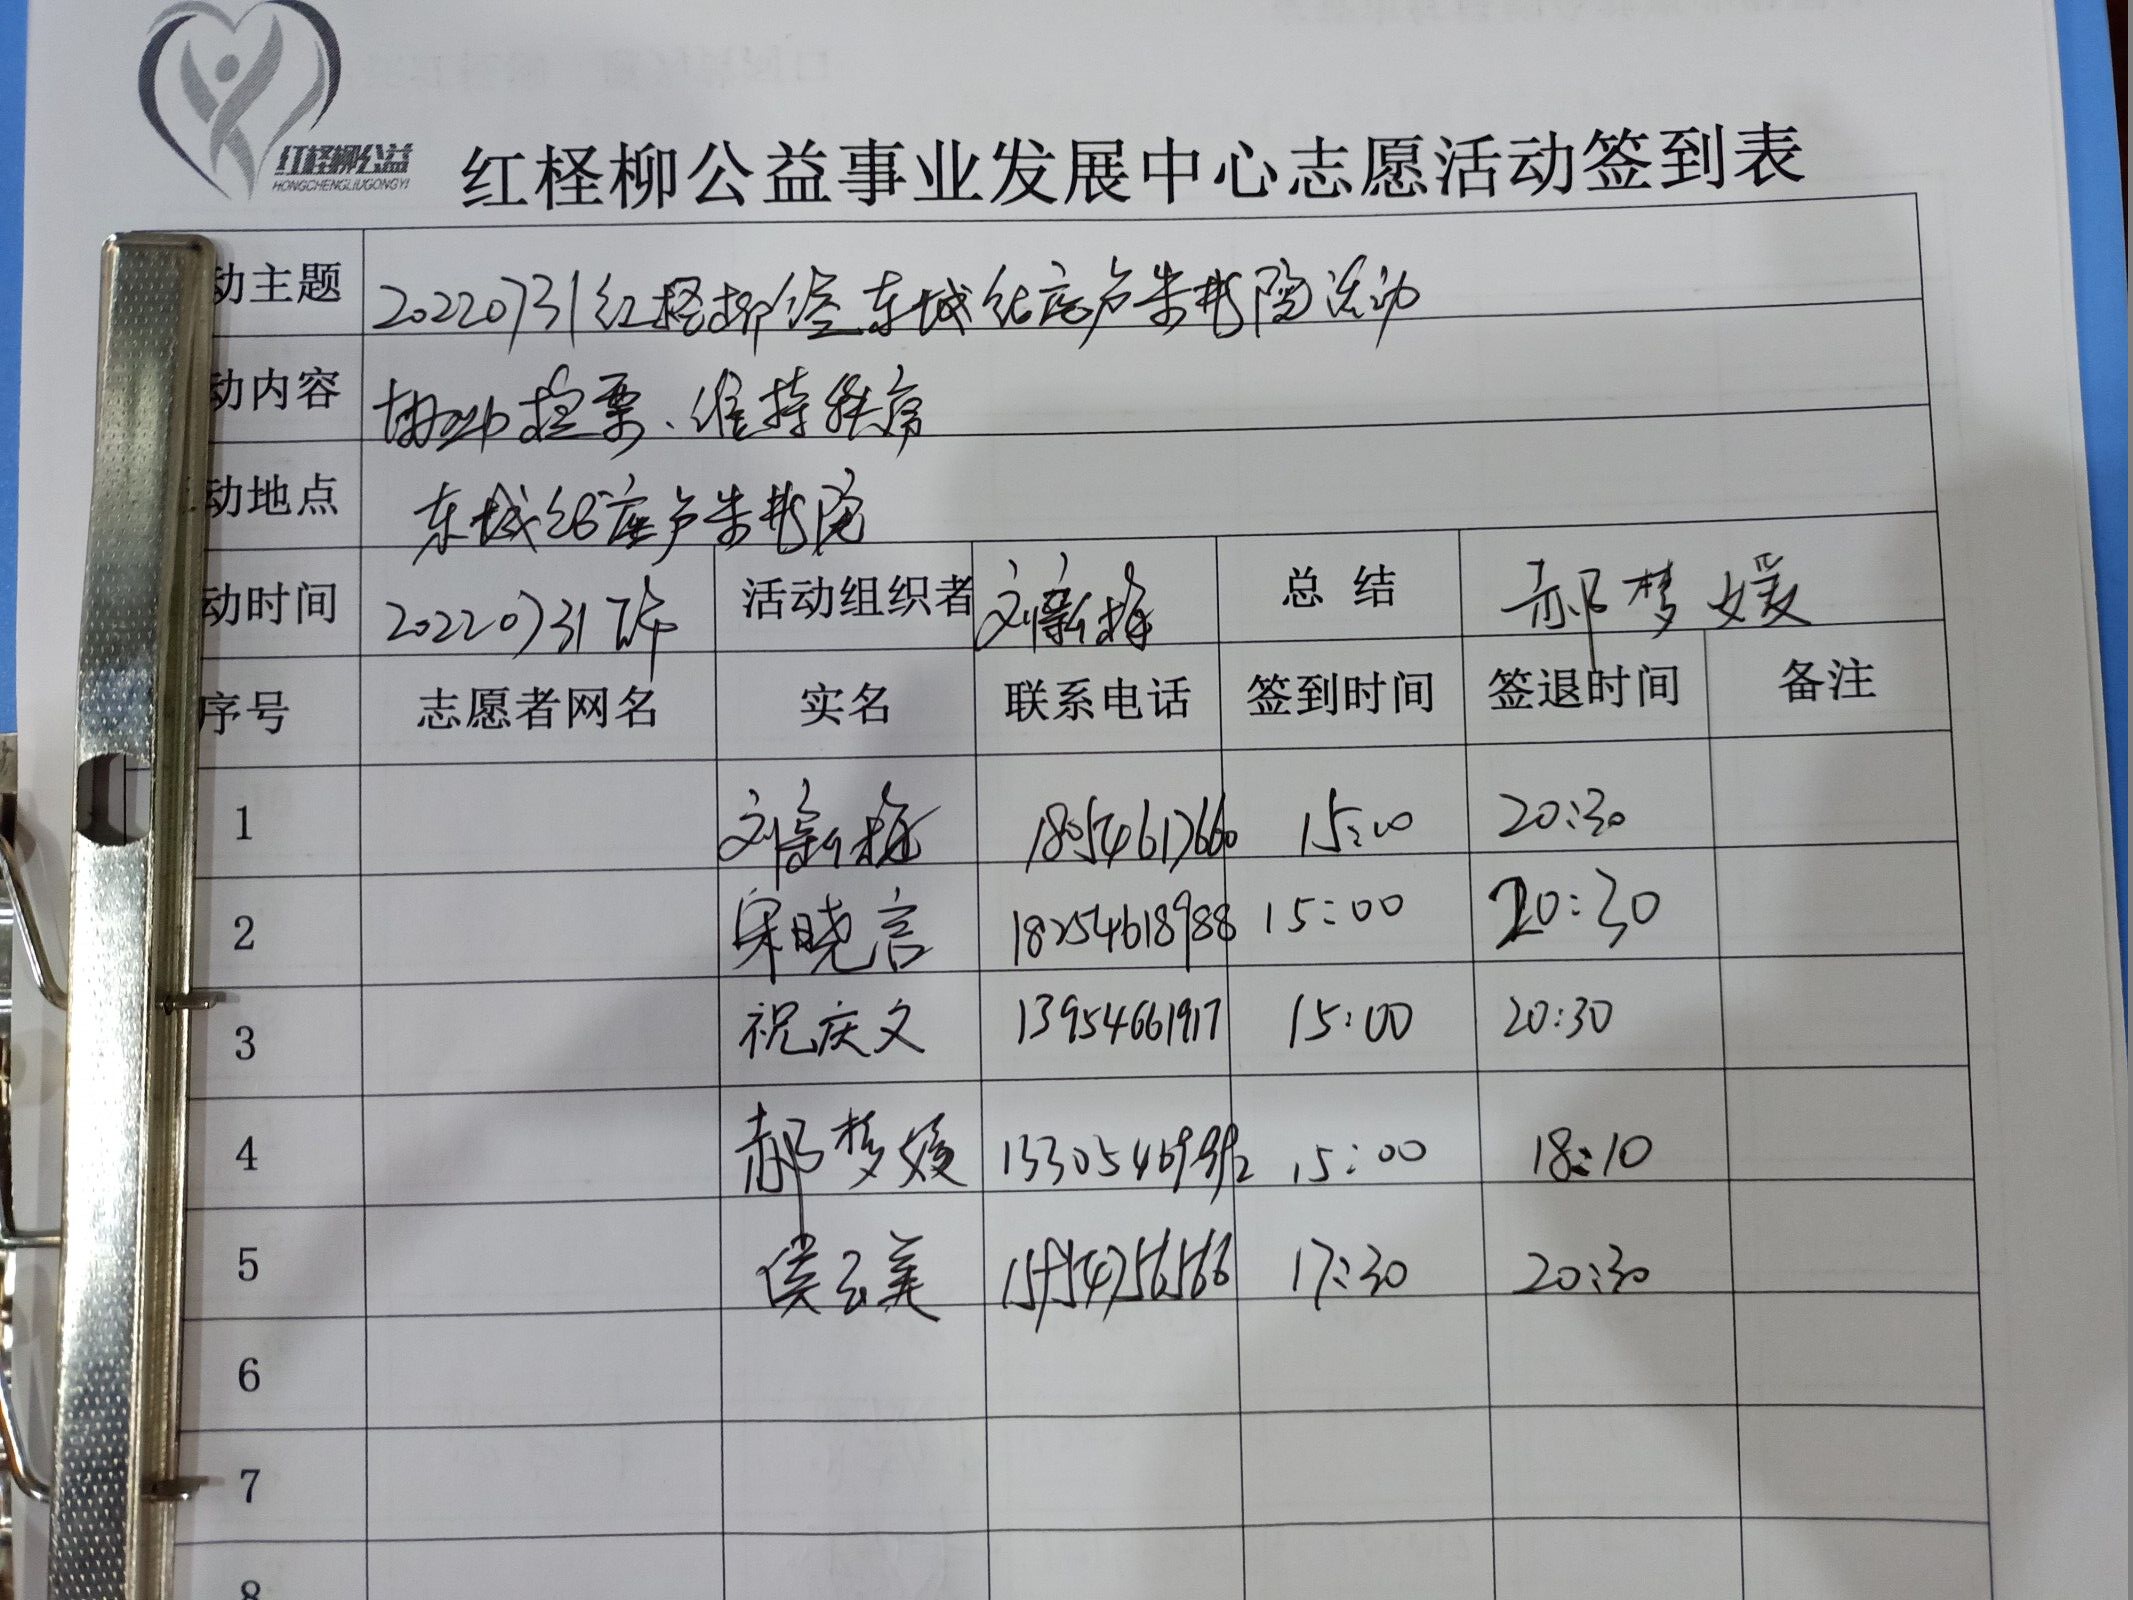 红柽柳公益
HONGCHENGLIUGONGYI
红柽柳公益事业发展中心志愿活动签到表
动主题 20220731红柽柳 东城 活动
动内容 协助检票、维持秩序
动地点 东城
动时间 20220731下午 活动组织者 刘新梅 总 结 郝梦媛
序号 志愿者网名 实名 联系电话 签到时间 签退时间 备注
1 刘新梅 18054617660 15:00 20:30
2 宋晓言 18254618988 15:00 20:30
3 祝庆文 13954661917 15:00 20:30
4 郝梦媛 15:00 18:10
5 侯云美 17:30 20:30
6
7
8